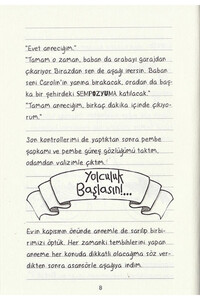 "Evet anneciğim."
"Tamam o zaman, baban da arabayı garajdan
çıkarıyor. Birazdan sen de aşağı inersin. Baban
seni Carolin'in yanına bırakacak, oradan da baş-
ka bir şehirdeki SEMPOZYUMA katılacak."
"Tamam anneciğim, birkaç dakika içinde çıkıyo-
rum."
Son kontrollerimi de yaptıktan sonra pembe
şapkamı ve pembe güneş gözlüğümü taktım,
odamdan valizimle çıktım.
Yolculuk
Başlasın!...
Evin kapısının önünde annemle de sarılıp birbi-
rimizi öptük. Her zamanki tembihlerini yapan
anneme her konuda dikkatli olacağıma söz ver-
dikten sonra asansörle aşağıya indim.
8